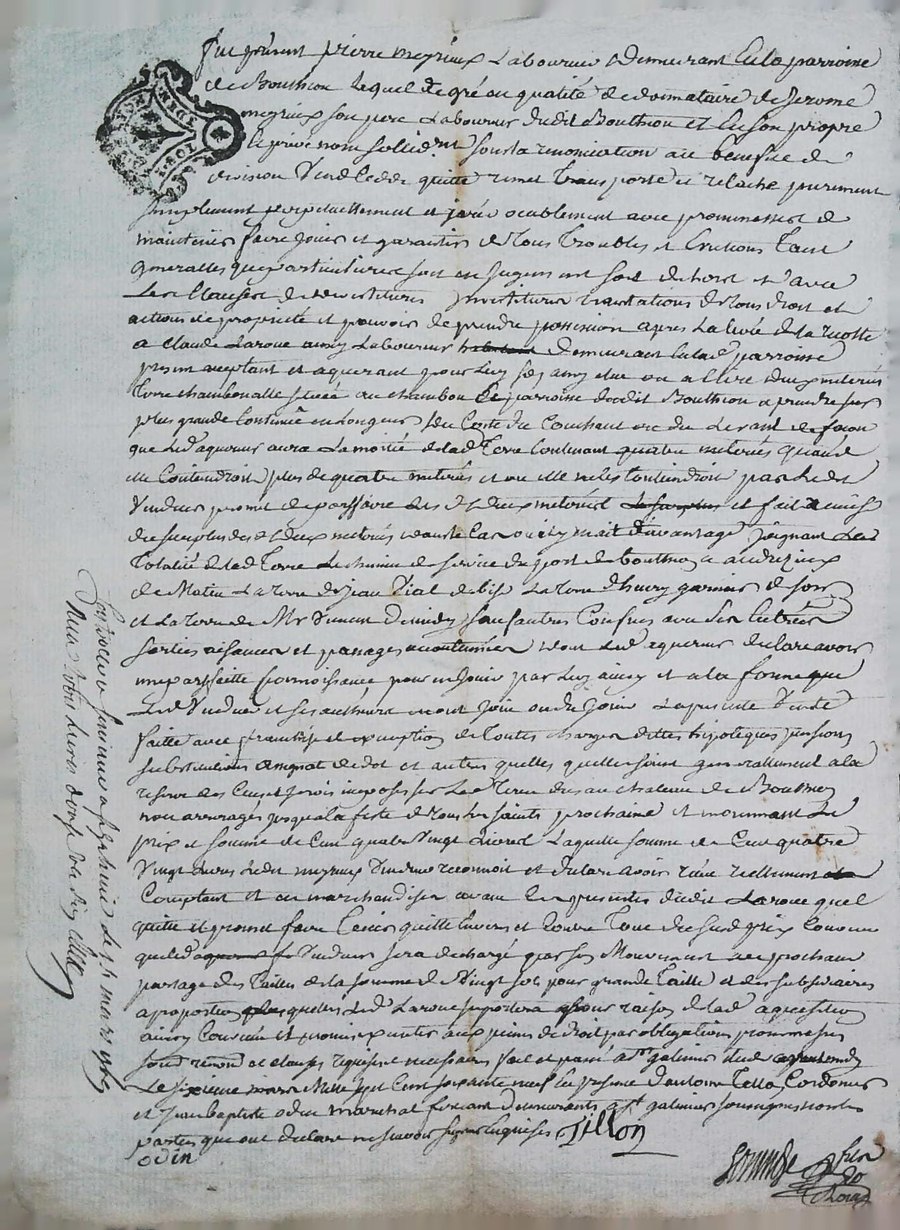 Fut présent pierre megrieux Laboureur demeurant en la parroisse
de Bouthion lequel de gré en qualité de donnataire de Jerome
megrieux son pere Laboureur dudit Bouthion et en son propre
et privé nom sollid.nt sous la renonciation au benefice de
division Vend Cedde quitte remet transporte et relache purement
simplement perpetuellement et avec promesse de
maintenir faire jouir et garantir de tous troubles et Evictions tant
generalles que particulieres soit en jugement soit dehors et avec
Les Clauses de devestitures investitures translations de tous droit et
actions de propriete et pouvoir de prendre possession apres La levée de la recolte
a Claude Laroue aussy Laboureur demeurant en lad parroisse
present acceptant et aquerant pour Luy ses amis elue ou a elire deux meterés
terre chambonalle située au chambon parroisse dudit Bouthion a prendre sur
plus grande Continüe en longeur du Costé du Couchant ou du Levant de facon
que led aquereur aura La moitié de lad terre Contenant quatre meterés quand
elle Contiendroit plus de quatre meterés et ou elle ne les Contiendroit pas Led
Vendeur promet de parffaire Les d deux meterés et fait
de surplus des d deux meterés dans le Cas ou il y auroit d'avantage joignant
Totalité de lad Terre Le chemin de service du port de bouthion a andrezieux
de Matin La terre de jean Vial de bise La terre d'henry garnier de soir
et La terre de Mr Vincent de midy sauf autres Confins avec ses Entrées
sorties aisances et passages accoutumés dont led aquereur declare avoir
une parffaitte Connoissance pour en jouir par luy ainsy et a la forme que
Led Vendeur et ses autheurs en ont joui ou du jouir La presente Vente
faitte avec franchise et exception de toutes charges dettes hipoteques pensions
substitutions de dot et autres quelles quelles soint generallement a la
reserve des Cens et servis imposés sur La Terre dus au chateau de Bouthion
non arreragés jusqu'a la feste de tous les saints prochaine et moyennant Le
prix et somme de Cent quatre Vingt Livres Laquelle somme de Cent quatre
Vingt Livres Ledit megrieux Vendeur reconnoit et declare avoir reçue reellement
Comptant et en marchandises avant Les presentes dudit Laroue quel
quitte et promet faire tenir quitte Envers et Contre Tous dudit prix Convenu
que led Vendeur sera dechargé par ses Mouvement au prochain
partage des tailles de la somme de Vingt sols pour grande taille et des subsidiaires
a proportion quelles Led Laroue suportera pour raison de lad aquisition
ainsy Convenu et promis exécuter aux peines de droit par obligations promesses
soumd renond et clauses requises et necessaires fait et passé a St galmier
Le sixieme mars Mille sept Cent soixante neuf En presence d'antoine Tillon Cordonnier
et jean baptiste odin marechal ferrant demeurants a St galmier soussignés non les
parties qui ont declaré ne scavoir signer Enquises Tillon
odin
Controllé a St galmier le 11 mars 1769
Reçu